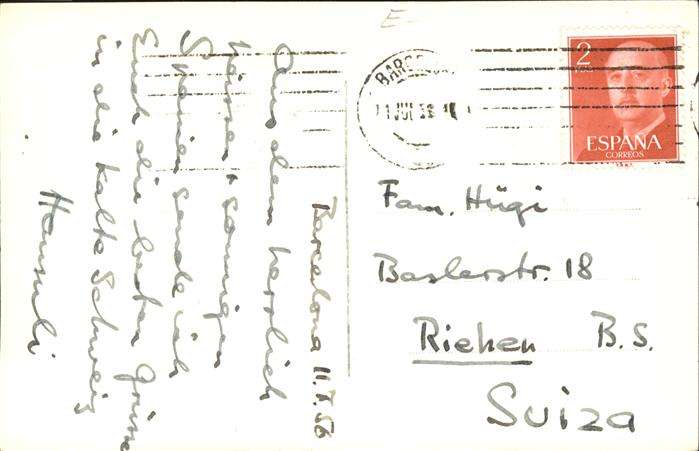 Barcelona 11.7.56
Aus dem herrlich
heissen + sonnigen
Spanien sende ich
Euch die besten Grüsse
in die kalte Schweiz
Hansruedi
E
2
PTAS
ESPAÑA
CORREOS
11 JUL 56
Fam. Hügi
Baslerstr. 18
Riehen B.S.
Suiza